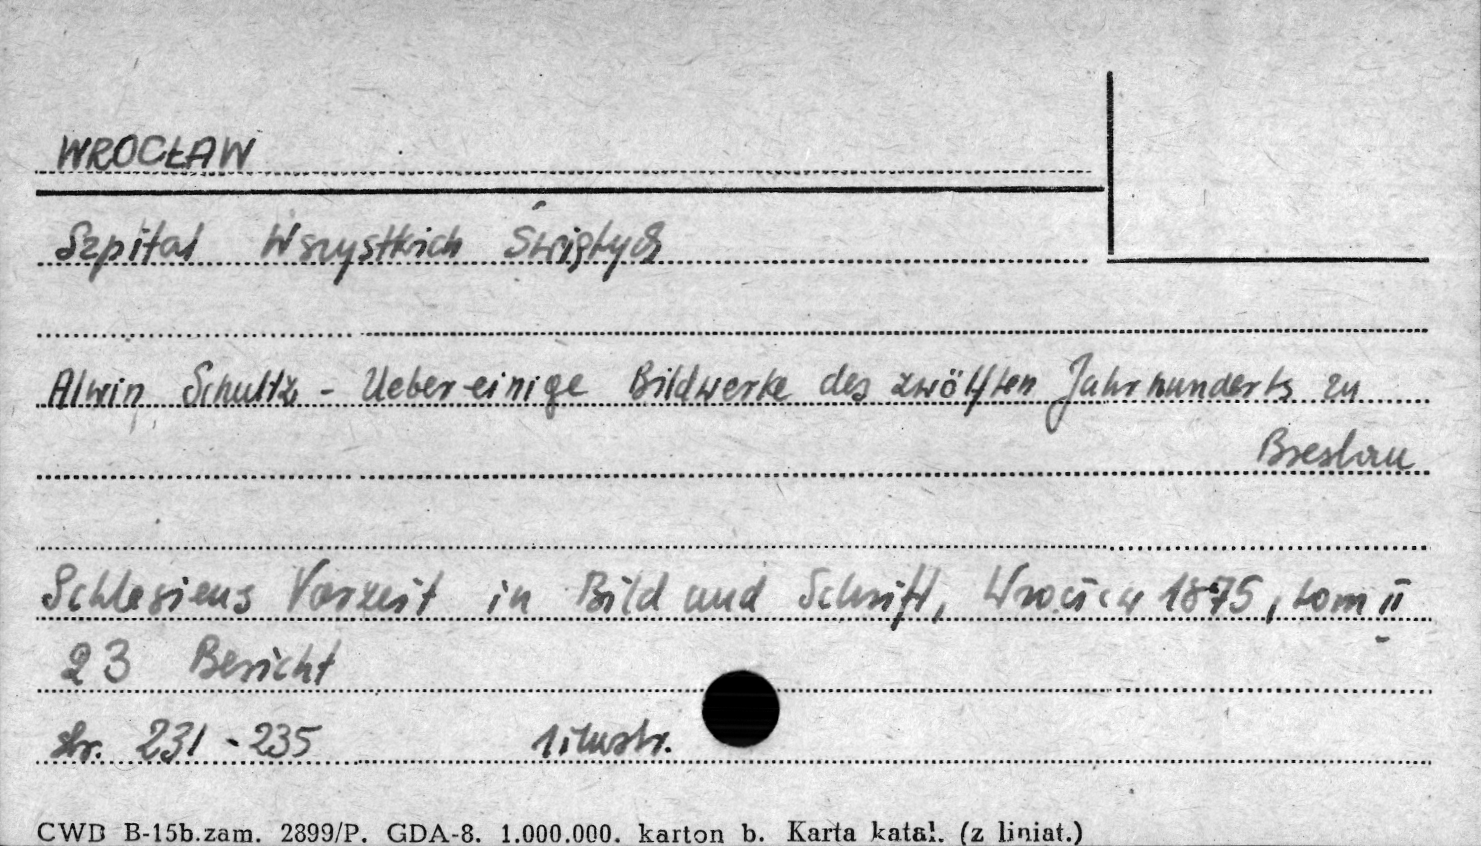 WROCŁAW
Szpital Wszystkich Świętych
Alwin Schultz - Ueber einige Bildwerke des zwölften Jahrhunderts zu
Breslau
Schlesiens Vorzeit in Bild und Schrift, Wrocław 1875, tom II
23 Bericht
str. 231 - 235 1 ilustr.
CWD B-15b.zam. 2899/P. GDA-8. 1.000.000. karton b. Karta katal. (z liniat.)